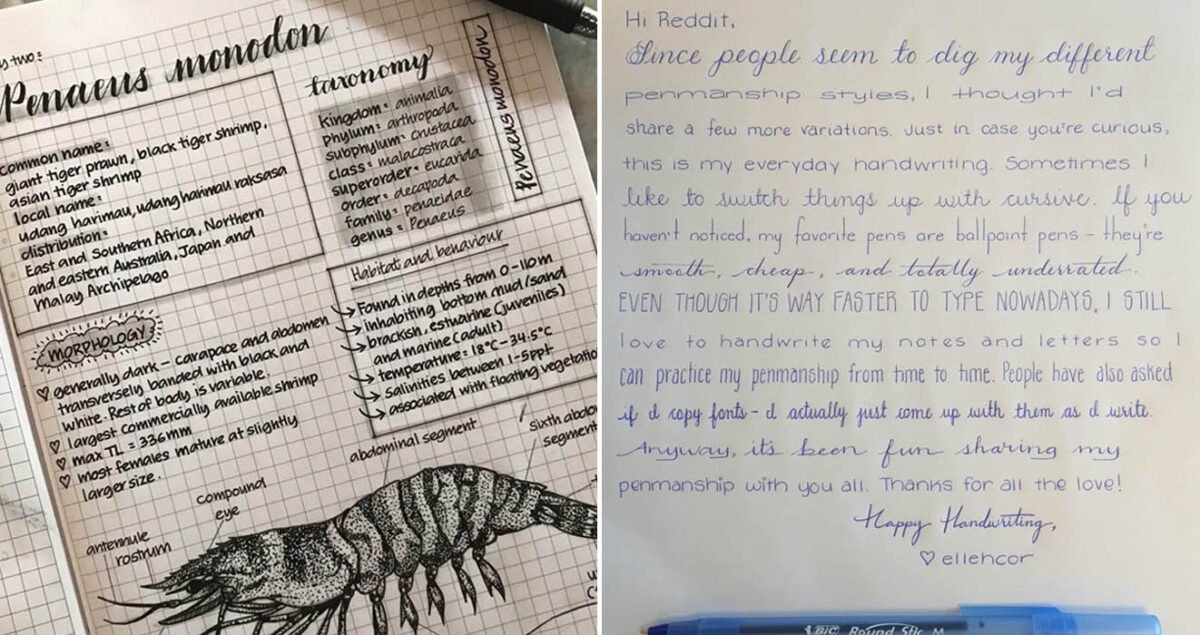 y two:
Penaeus monodon
common name:
giant tiger prawn, black tiger shrimp,
asian tiger shrimp
local name:
udang harimau, udang harimau raksasa
distribution:
East and Southern Africa, Northern
and eastern Australia, Japan and
Malay Archipelago
taxonomy
kingdom: animalia
phylum: arthropoda
subphylum: crustacea
class: malacostraca
superorder: eucarida
order: decapoda
family: penaeidae
genus: Penaeus
Penaeus monodon
MORPHOLOGY
♡ generally dark - carapace and abdomen
transversely banded with black and
white. Rest of body is variable.
♡ largest commercially available shrimp
♡ max TL = 336mm
♡ most females mature at slightly
larger size.
Habitat and behaviour
↳ Found in depths from 0-110m
↳ inhabiting bottom mud/sand
↳ brackish, estuarine (juveniles)
and marine (adult)
↳ temperature = 18°C - 34.5°C
↳ salinities between 1-5ppt
↳ associated with floating vegetatio
antennule
rostrum
compound
eye
abdominal segment
sixth abdo
segment
Hi Reddit,
Since people seem to dig my different
penmanship styles, I thought I'd
share a few more variations. Just in case you're curious,
this is my everyday handwriting. Sometimes I
like to switch things up with cursive. If you
haven't noticed, my favorite pens are ballpoint pens - they're
smooth, cheap, and totally underrated.
EVEN THOUGH IT'S WAY FASTER TO TYPE NOWADAYS, I STILL
love to handwrite my notes and letters so I
can practice my penmanship from time to time. People have also asked
if I copy fonts - I actually just come up with them as I write.
Anyway, it's been fun sharing my
penmanship with you all. Thanks for all the love!
Happy Handwriting,
♡ ellehcor
BIC Round Stic M